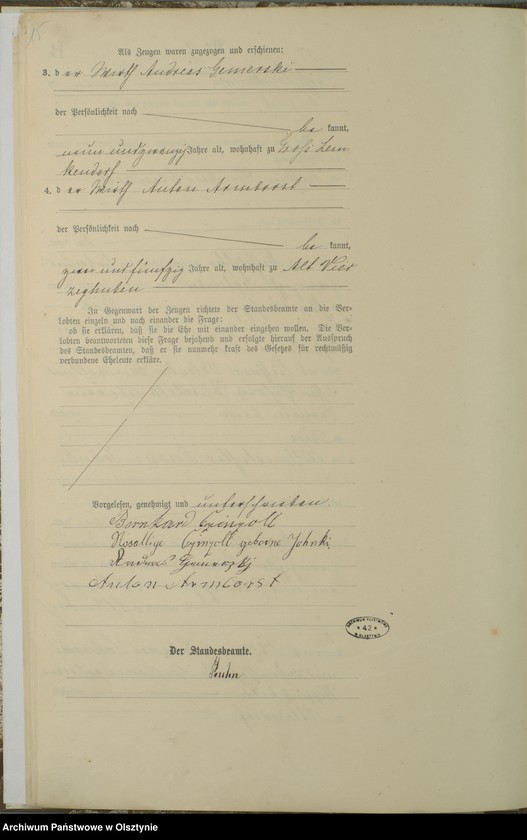 Als Zeugen waren zugezogen und erschienen:
3. d er Wirth Andreas Gemerski
der Persönlichkeit nach
be kannt,
neun und zwanzig Jahre alt, wohnhaft zu Groß Lem
kendorf
4. d er Wirth Anton Armborst
der Persönlichkeit nach
be kannt,
zwei und fünfzig Jahre alt, wohnhaft zu Alt Vier
zighuben
In Gegenwart der Zeugen richtete der Standesbeamte an die Ver-
lobten einzeln und nach einander die Frage:
ob sie erklären, daß sie die Ehe mit einander eingehen wollen. Die Ver-
lobten beantworteten diese Frage bejahend und erfolgte hierauf der Ausspruch
des Standesbeamten, daß er sie nunmehr kraft des Gesetzes für rechtmäßig
verbundene Eheleute erkläre.
Vorgelesen, genehmigt und unterschrieben.
Bernhard
Rosallige geborne
Andreas
Anton Armborst
ARCHIWUM PAŃSTWOWE
* 42 *
W OLSZTYNIE
Der Standesbeamte.
Archiwum Państwowe w Olsztynie